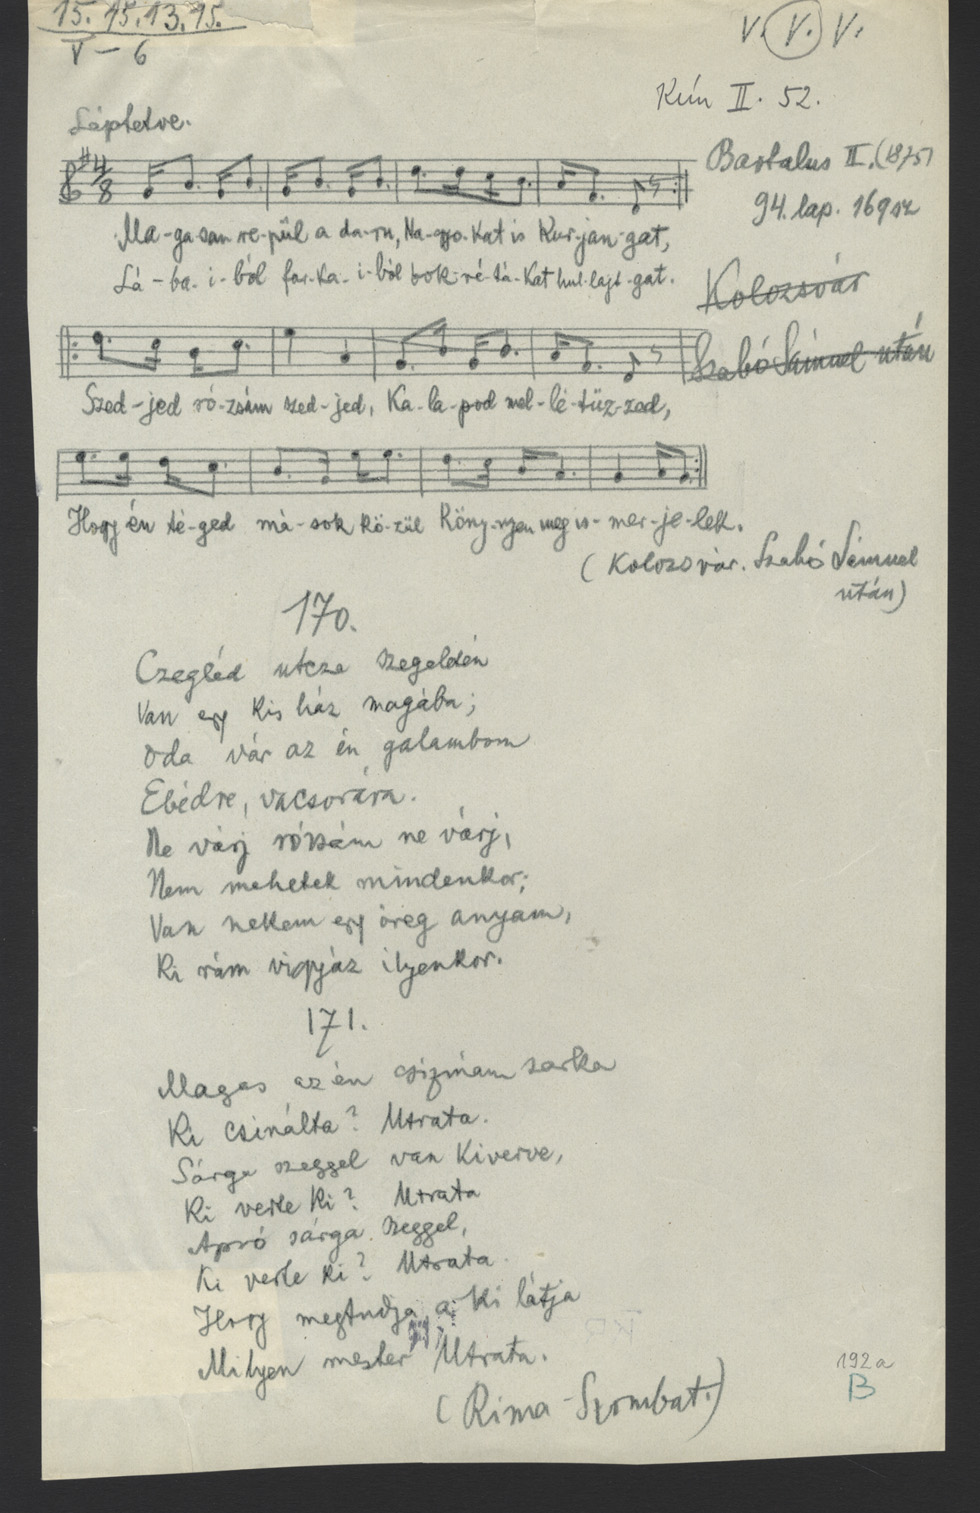 15. 15. 13. 15.
V – 6
V. V. V.
Kún II. 52.
Léptetve.
Bartalus II. (1875)
94. lap. 169 sz
Ma-ga-san re-pül a da-ru, Na-gyo-kat is kur-jon-gat,
Lá-ba-i-ból far-ka-i-ból bok-ré-tá-kat hul-lajt-gat.
Kolozsvár
Szabó Sámuel után
Szed-jed ró-zsám szed-jed, Ka-la-pod mel-lé-tüz-zed,
Hogy én té-ged má-sok kö-zül köny-nyen meg is-mer-je-lek.
(Kolozsvár. Szabó Sámuel
után)
170.
Czegléd utcza szegeldén
Van egy kis ház magába;
Oda vár az én galambom
Ebédre, vacsorára.
Ne várj rózsám ne várj,
Nem mehetek mindenkor;
Van nekem egy öreg anyám,
Ki rám vigyáz ilyenkor.
171.
Magas az én csizmám sarka
Ki csinálta? Utrata.
Sárga szeggel van kiverve,
Ki verte ki? Utrata
Apró sárga szeggel,
Ki verte ki? Utrata.
Hogy megtudja a ki látja
Milyen mester Utrata.
(Rima-Szombat.)
192a
B